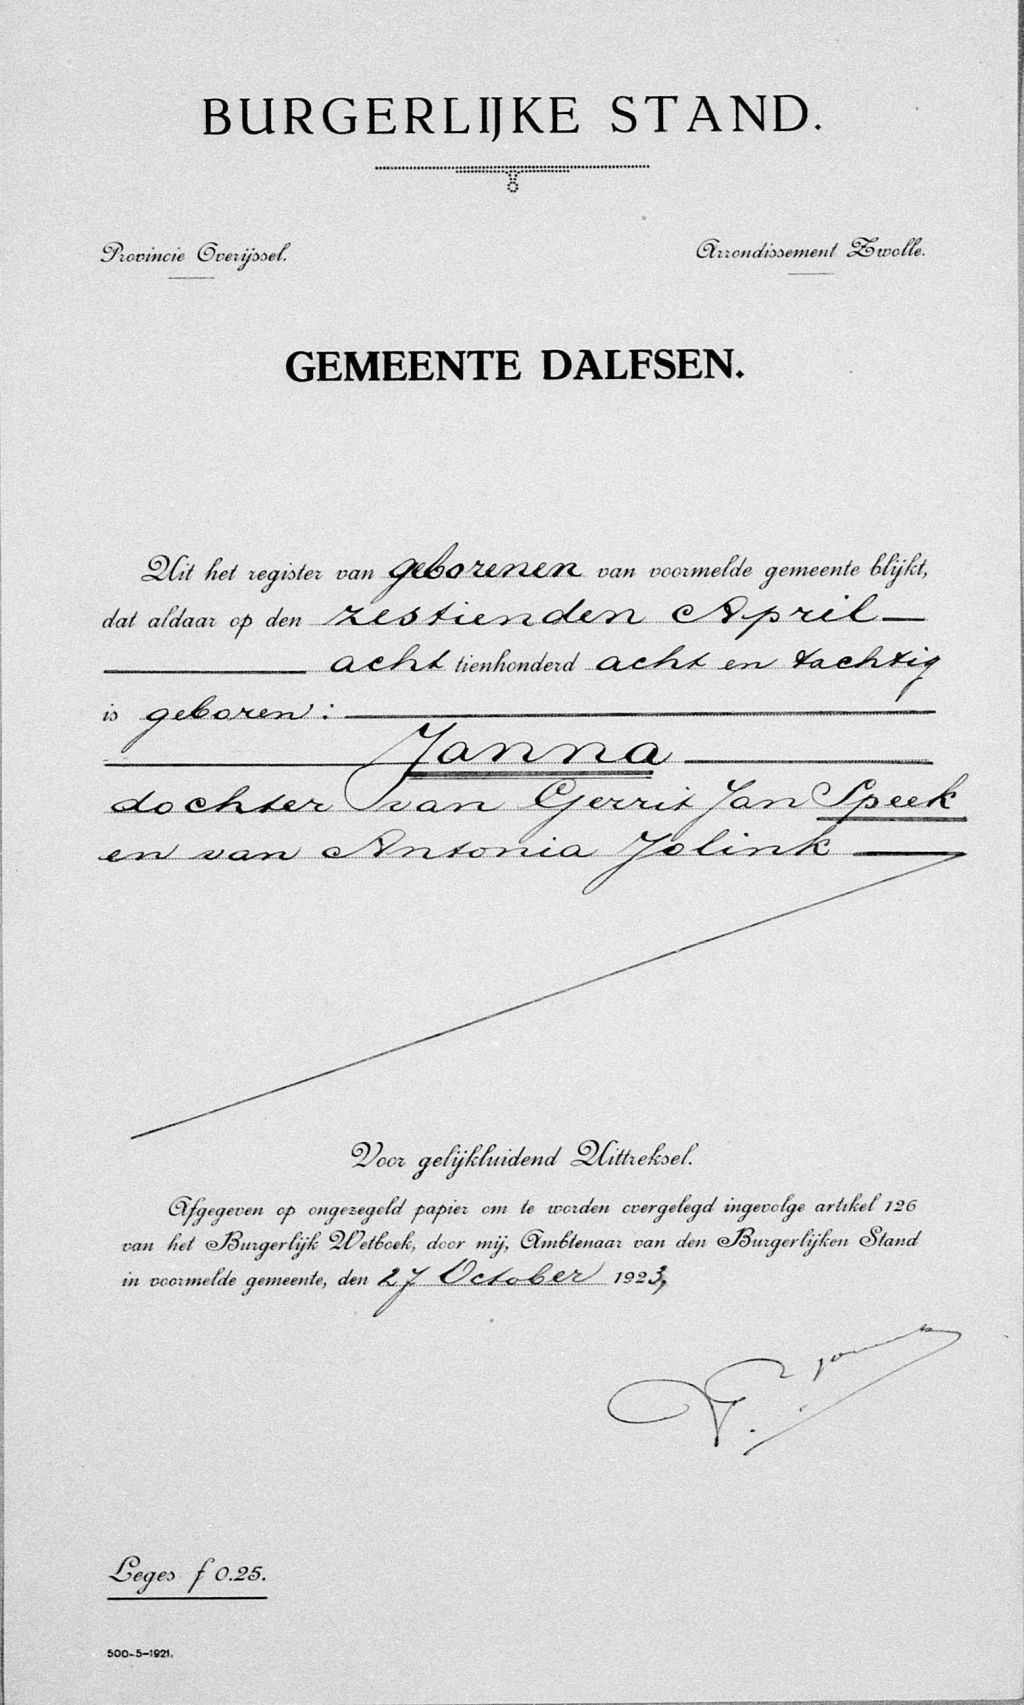 BURGERLIJKE STAND.
Provincie Overijssel.
Arrondissement Zwolle.
GEMEENTE DALFSEN.
Uit het register van geborenen van voormelde gemeente blijkt,
dat aldaar op den zestienden April
acht tienhonderd acht en tachtig
is geboren:
Janna
dochter van Gerrit Jan Speek
en van Antonia Jolink
Voor gelijkluidend Uittreksel.
Afgegeven op ongezegeld papier om te worden overgelegd ingevolge artikel 126
van het Burgerlijk Wetboek, door mij, Ambtenaar van den Burgerlijken Stand
in voormelde gemeente, den 27 October 1923,
Leges f 0.25.
500-5-1921.